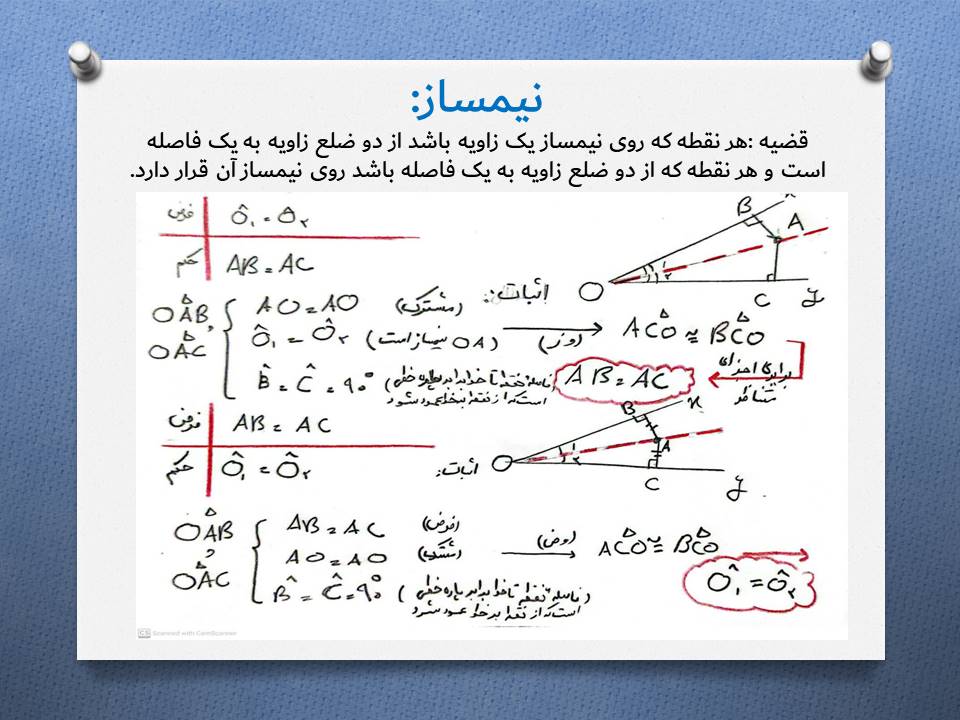 نیمساز:
قضیه :هر نقطه که روی نیمساز یک زاویه باشد از دو ضلع زاویه به یک فاصله
است و هر نقطه که از دو ضلع زاویه به یک فاصله باشد روی نیمساز آن قرار دارد.
فرض Ô₁ = Ô₂
حکم AB = AC
x
B
A
O
۱
۲
C
y
اثبات:
OAB, OAC
AO = AO (مشترک)
Ô₁ = Ô₂ (OA نیمساز است)
B̂ = Ĉ = ۹۰° (فاصله نقطه تا خط برابر پاره خطی
است که از نقطه بر خط عمود شود
(وز)
ACO ≅ BCO
برابری اجزای
متناظر
AB = AC
فرض AB = AC
حکم Ô₁ = Ô₂
اثبات:
x
B
A
O
۱
۲
C
y
OAB, OAC
AB = AC (فرض)
AO = AO (مشترک)
B̂ = Ĉ = ۹۰° (فاصله نقطه تا خط برابر پاره خطی
است که از نقطه بر خط عمود شود)
(وض)
ACO ≅ BCO
Ô₁ = Ô₂
CS Scanned with CamScanner